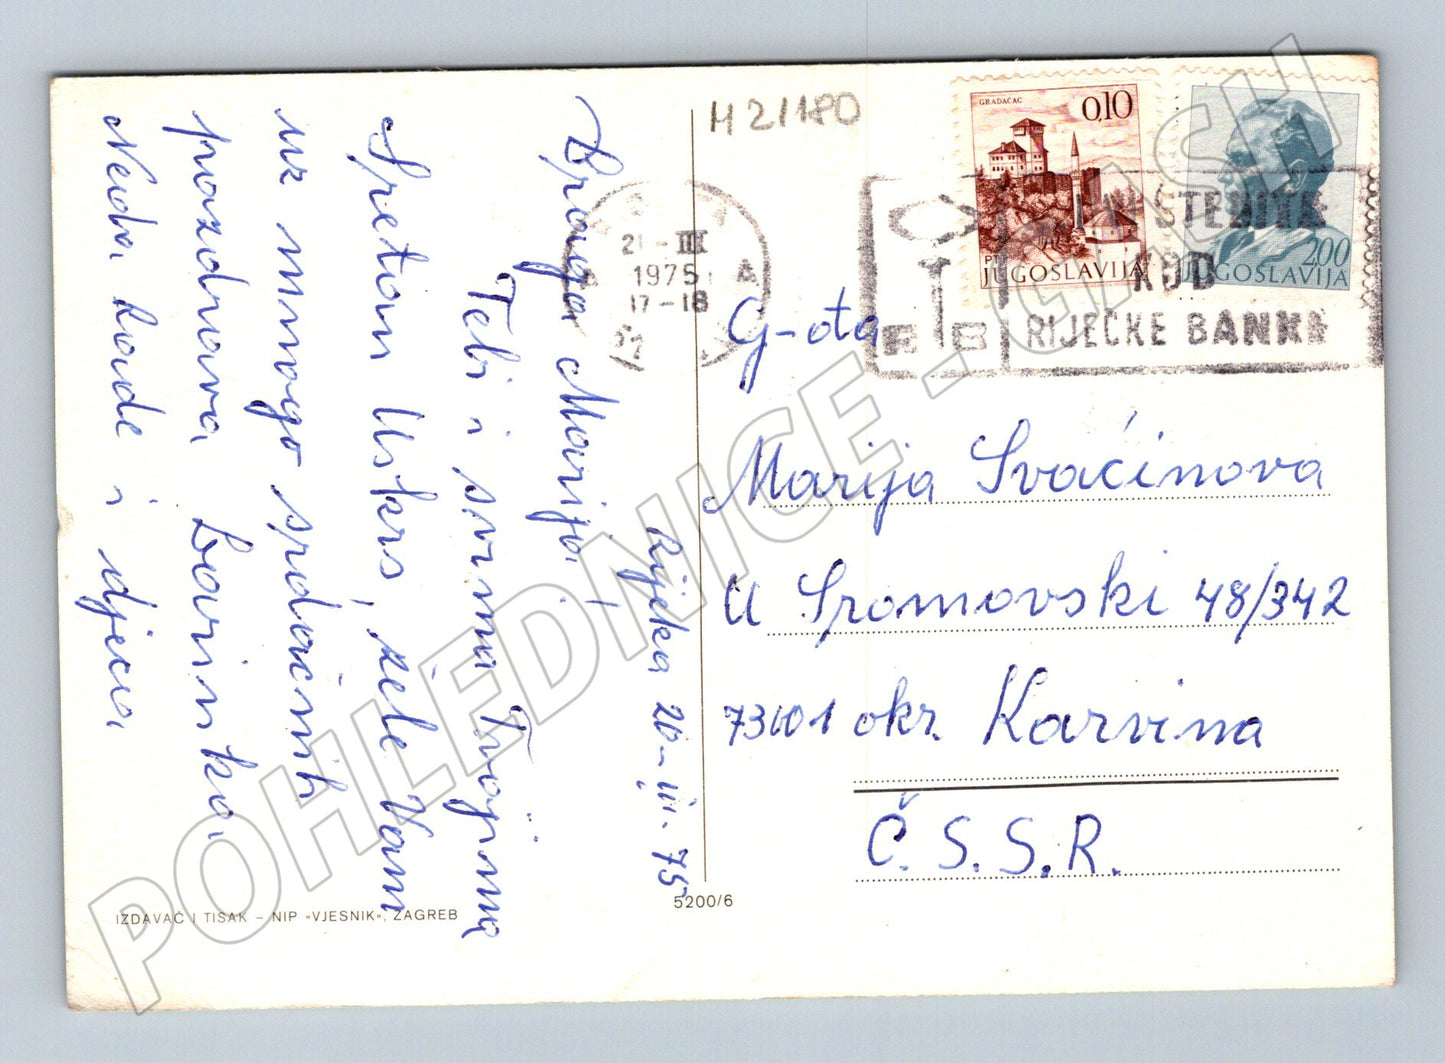 Draga Marija!
Rijeka 20-III-75
Tebi i svima Tvojima
Sretan Uskrs, žele Vam
uz mnogo srdačnih
pozdrava Barinka,
Neda, Rade i djeca
IZDAVAČ I TISAK – NIP »VJESNIK«, ZAGREB
5200/6
H 21180
21-III
1975
17-18
A
GRADAČAC
0,10
JUGOSLAVIJA
2,00
JUGOSLAVIJA
ŠTEDITE
KOD
RIJEČKE BANKE
RB
G-đa
Marija Svačinova
U Svornosti 48/342
73401 okr. Karvina
Č.S.S.R.
POHLEDNICE - CASH